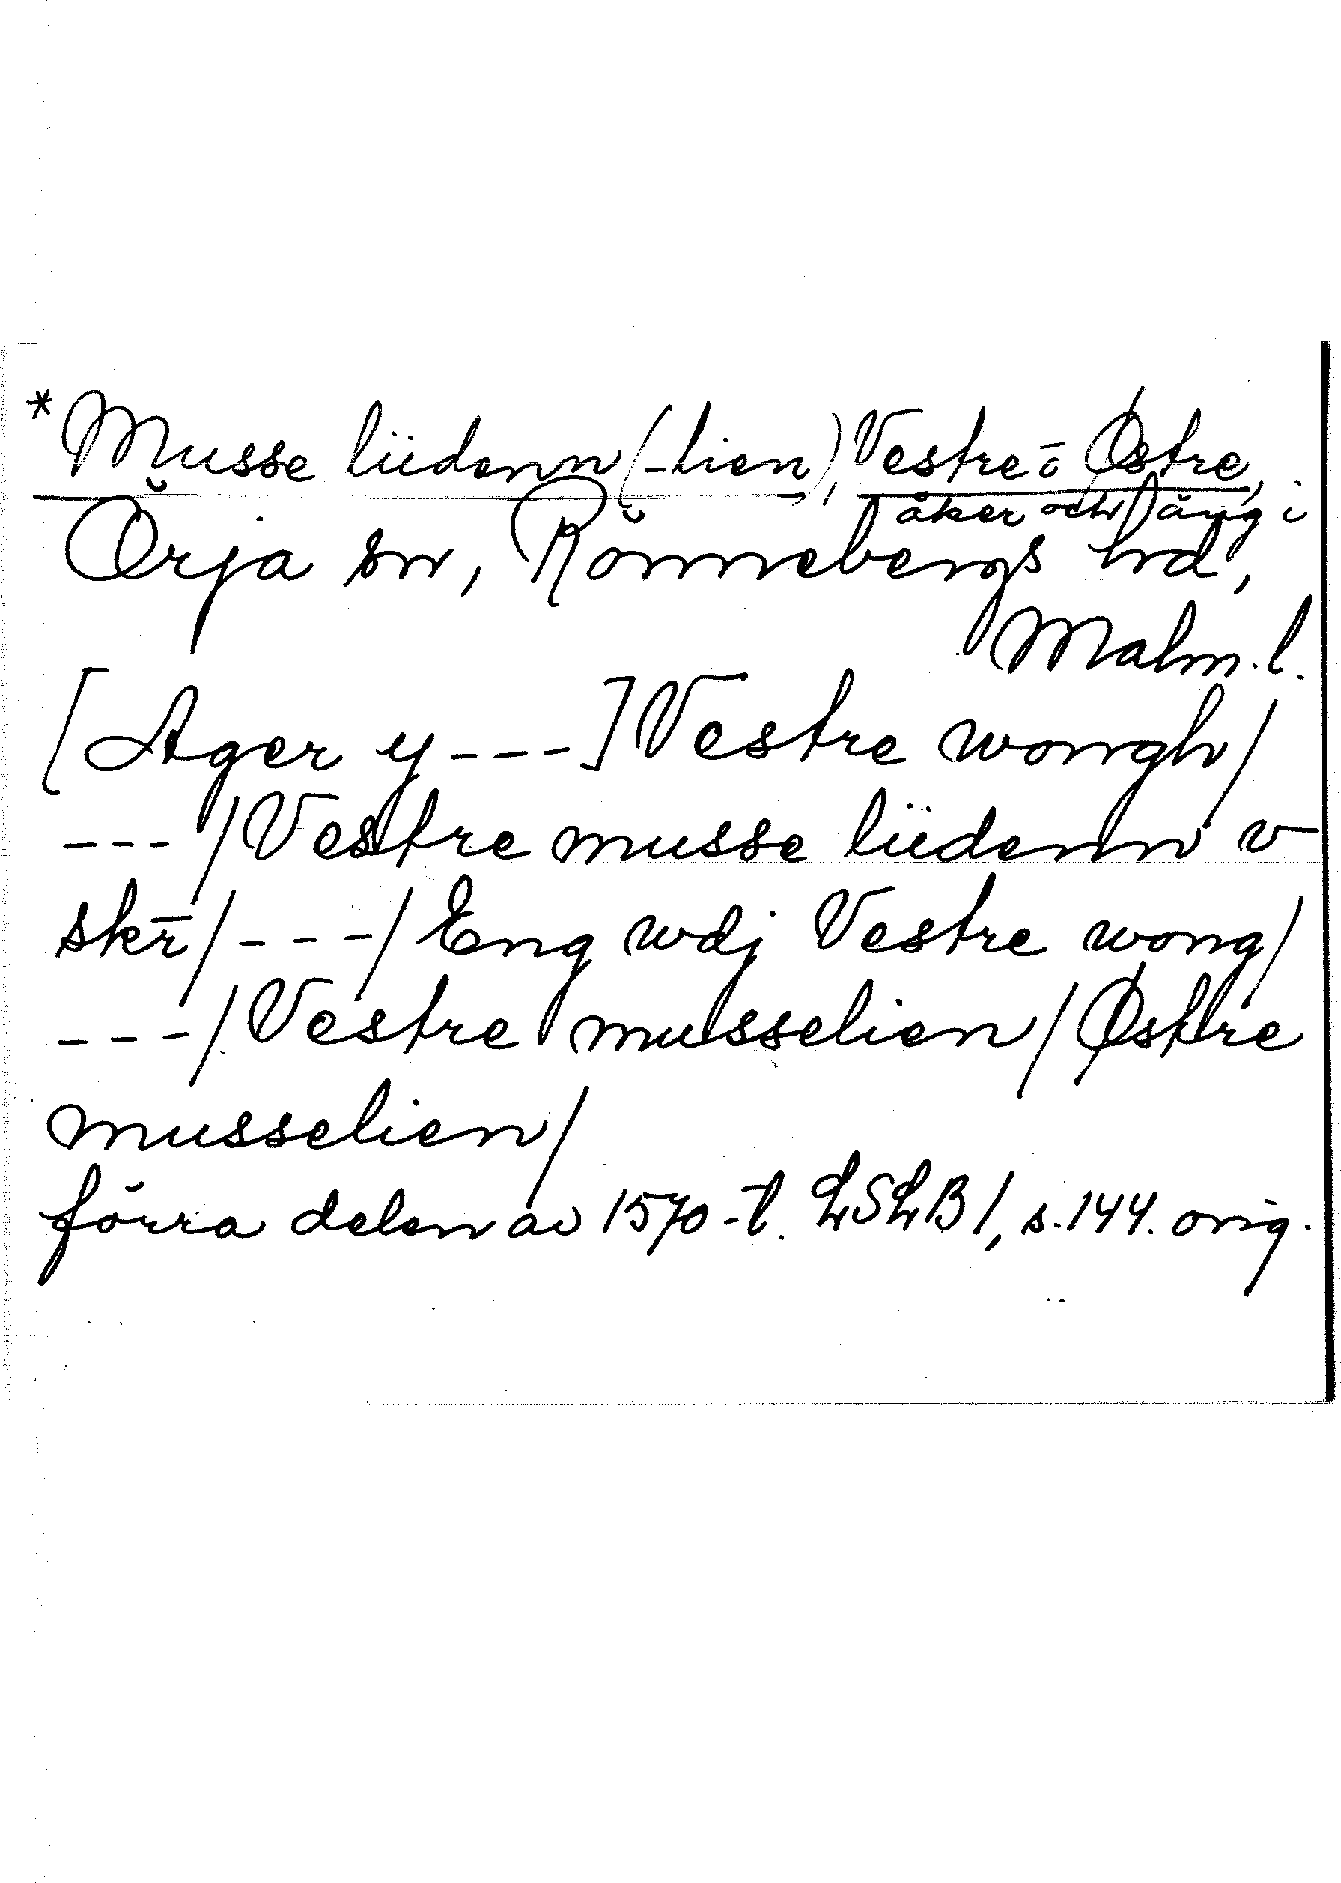 *Musse lüdenn (-lien), Vestre o Østre,
åker och äng i
Örja sn, Rönnebergs hd,
Malm. l.
[Ager y---] Vestre wongh/
---/Vestre musse lüdenn v
skr̄/---/Eng wdj Vestre wong/
---/Vestre musselien/Østre
musselien/
förra delen av 1570-t. LSLB1, s. 144. orig.